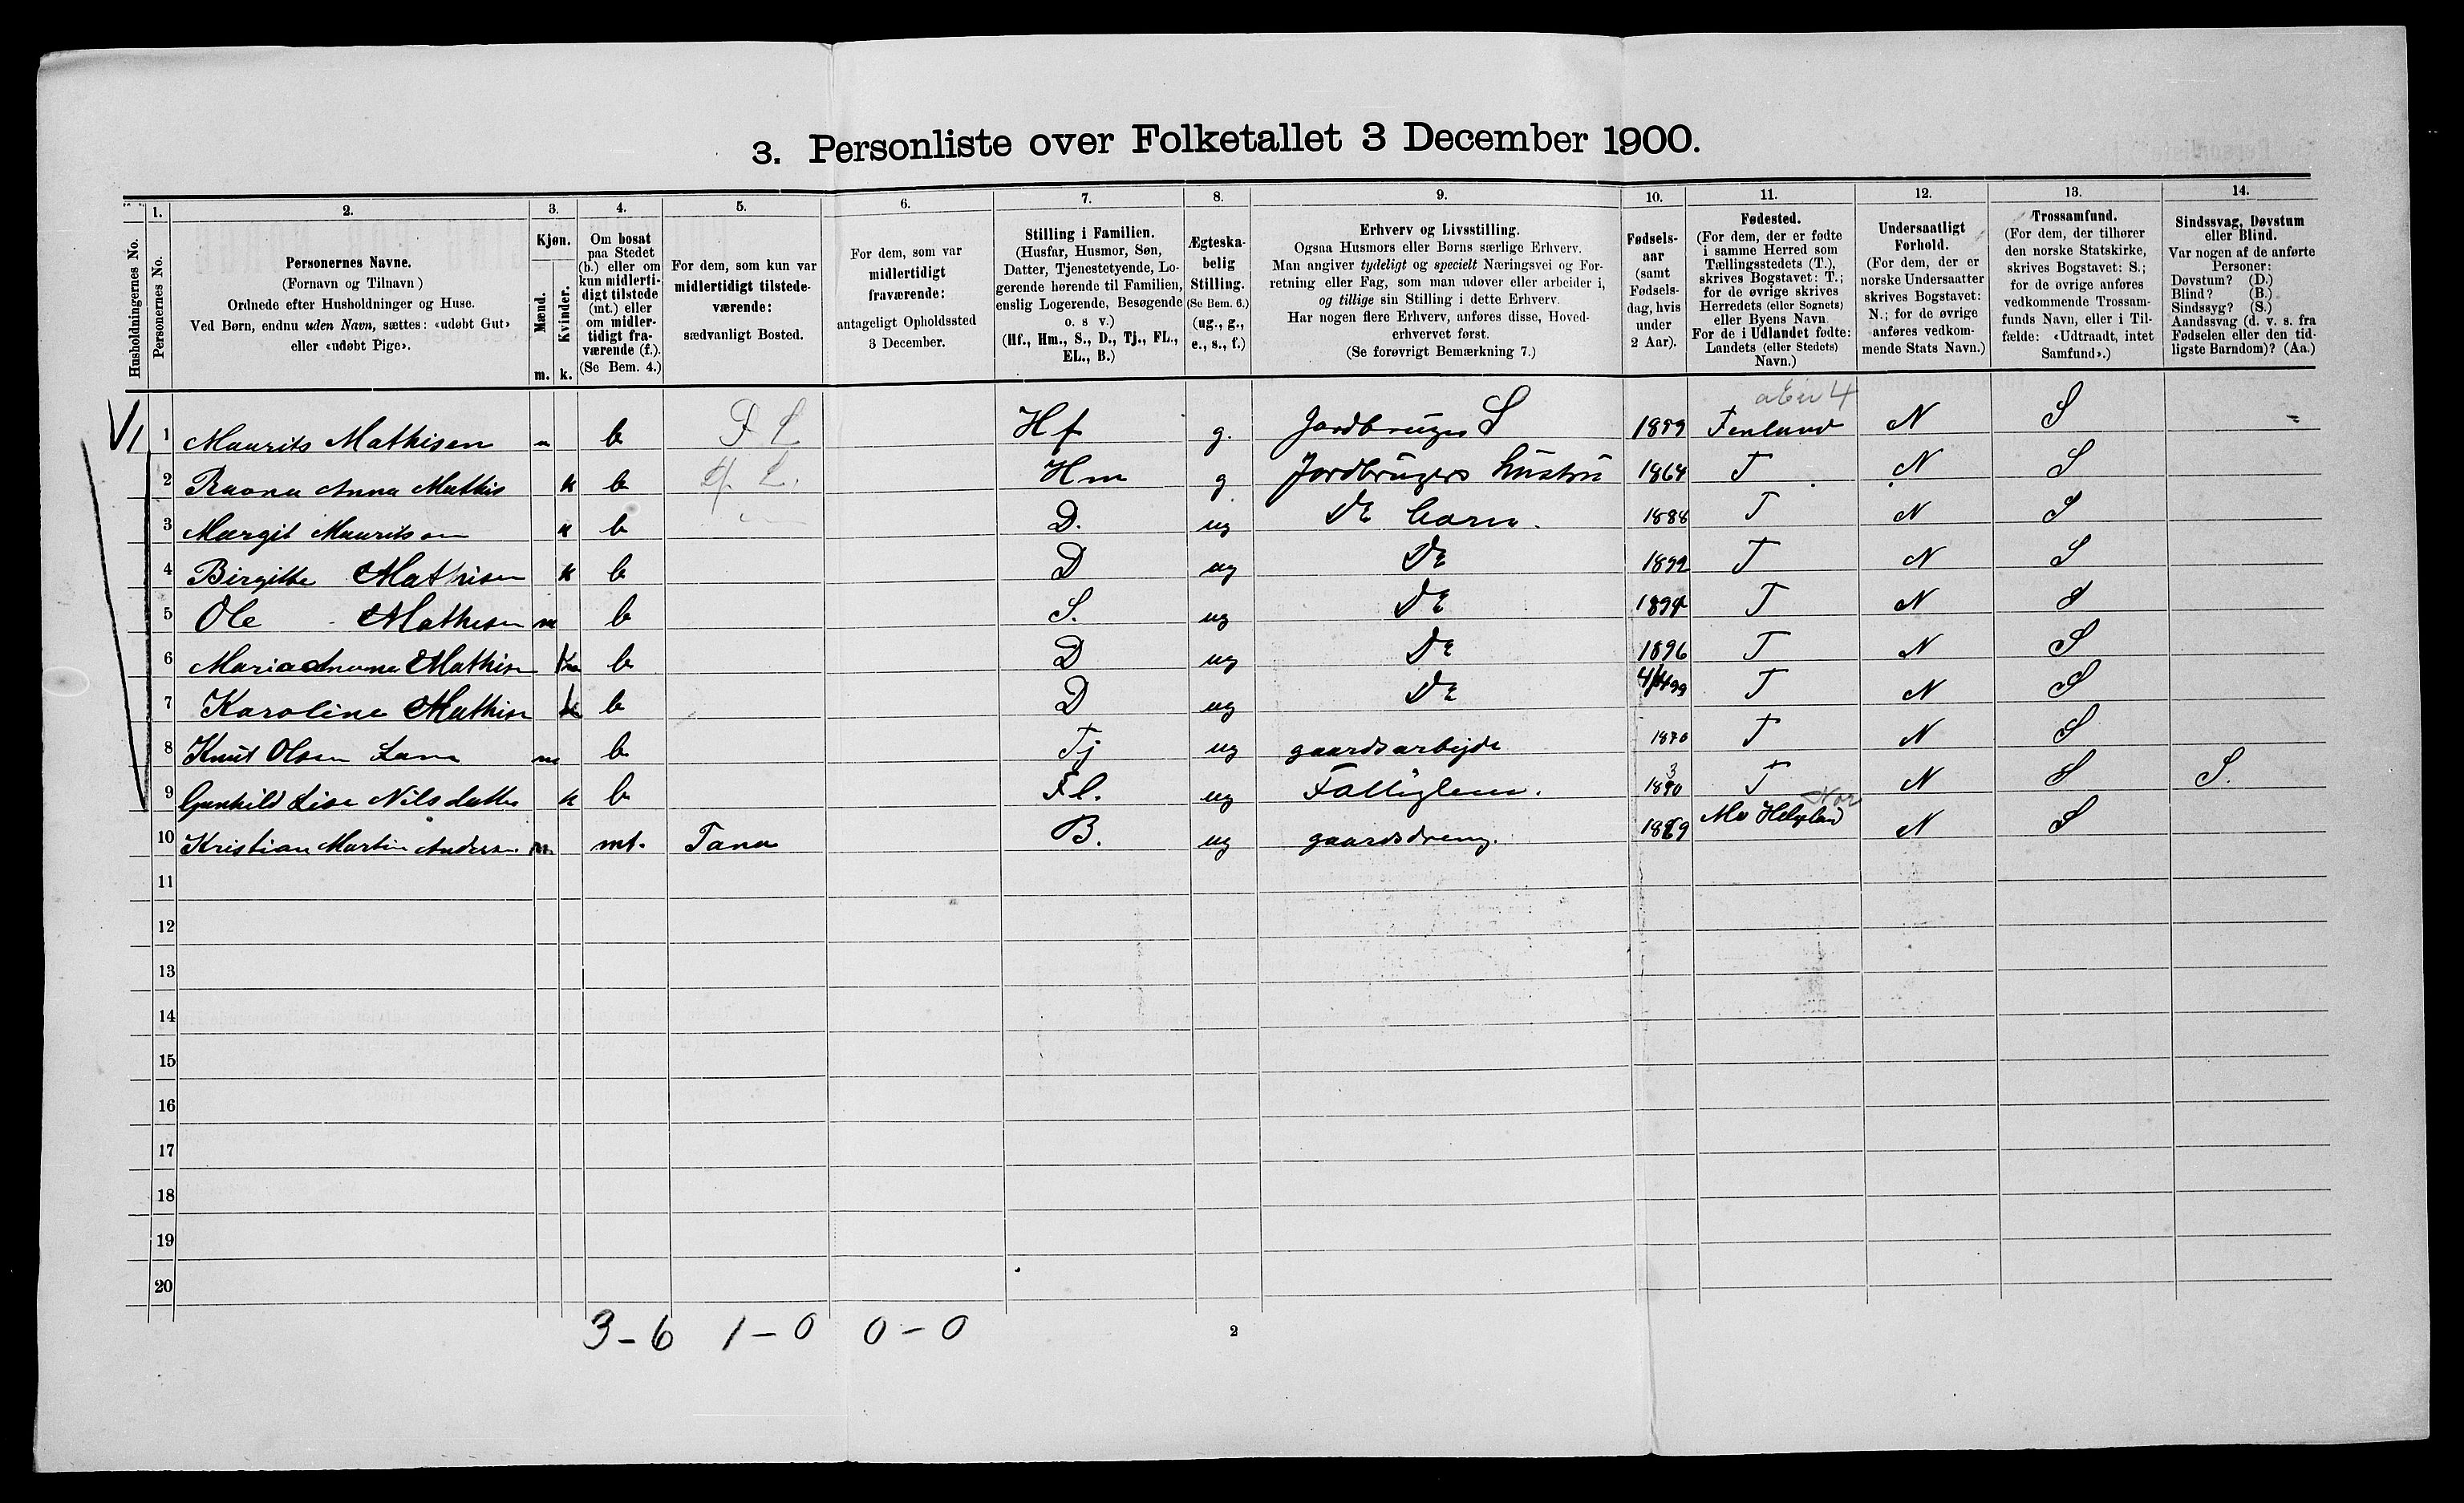 3. Personliste over Folketallet 3 December 1900.
1. 2. 3. 4. 5. 6. 7. 8. 9. 10. 11. 12. 13. 14.
Husholdningernes No.
Personernes No.
Personernes Navne.
(Fornavn og Tilnavn)
Ordnede efter Husholdninger og Huse.
Ved Børn, endnu uden Navn, sættes: «udøbt Gut»
eller «udøbt Pige».
Kjøn.
Mænd.
Kvinder.
m. k.
Om bosat
paa Stedet
(b.) eller om
kun midlerti-
digt tilstede
(mt.) eller
om midler-
tidigt fra-
værende (f.).
(Se Bem. 4.)
For dem, som kun var
midlertidigt tilstede-
værende:
sædvanligt Bosted.
For dem, som var
midlertidigt
fraværende:
antageligt Opholdssted
3 December.
Stilling i Familien.
(Husfar, Husmor, Søn,
Datter, Tjenestetyende, Lo-
gerende hørende til Familien,
enslig Logerende, Besøgende
o. s v.)
(Hf., Hm., S., D., Tj., FL.,
EL., B.)
Ægteska-
belig
Stilling.
(Se Bem. 6.)
(ug., g.,
e., s., f.)
Erhverv og Livsstilling.
Ogsaa Husmors eller Børns særlige Erhverv.
Man angiver tydeligt og specielt Næringsvei og For-
retning eller Fag, som man udøver eller arbeider i,
og tillige sin Stilling i dette Erhverv.
Har nogen flere Erhverv, anføres disse, Hoved-
erhvervet først.
(Se forøvrigt Bemærkning 7.)
Fødsels-
aar
(samt
Fødsels-
dag, hvis
under
2 Aar).
Fødested.
(For dem, der er fødte
i samme Herred som
Tællingsstedets (T.),
skrives Bogstavet: T.;
for de øvrige skrives
Herredets (eller Sognets)
eller Byens Navn.
For de i Udlandet fødte:
Landets (eller Stedets)
Navn.)
Undersaatligt
Forhold.
(For dem, der er
norske Undersaatter
skrives Bogstavet:
N.; for de øvrige
anføres vedkom-
mende Stats Navn.)
Trossamfund.
(For dem, der tilhører
den norske Statskirke,
skrives Bogstavet: S.;
for de øvrige anføres
vedkommende Trossam-
funds Navn, eller i Til-
fælde: «Udtraadt, intet
Samfund».)
Sindssvag, Døvstum
eller Blind.
Var nogen af de anførte
Personer:
Døvstum? (D.)
Blind? (B.)
Sindssyg? (S.)
Aandssvag (d. v. s. fra
Fødselen eller den tid-
ligste Barndom)? (Aa.)
1 Maurits Mathisen m b F L Hf g. Jordbruger S Finland N S
2 Ravna Anna Mathis k b L. Hm g Jordbrugers hustru 1864 T N S
3 Margit Mauritsen k b D. ug De barn. 1888 T N S
4 Birgitte Mathisen k b D ug De 1892 T N S
5 Ole Mathisen m b S. ug De 1894 T N S
6 Maria Anna Mathisn k b D ug De 1896 T N S
7 Karoline Mathisn k b D ug De T N S
8 Knut Olsen m b Tj ug gaardsarbejde 1870 T N S
9 Gunhild Lise Nilsdatter k b Fl. ug Fattiglem. T N S S.
10 Kristian Martin Anders. m mt. Tana B. ug gaardsdreng. Mo Helgland N S
11
12
13
14
15
16
17
18
19
20
3 - 6 1 - 0 0 - 0
2